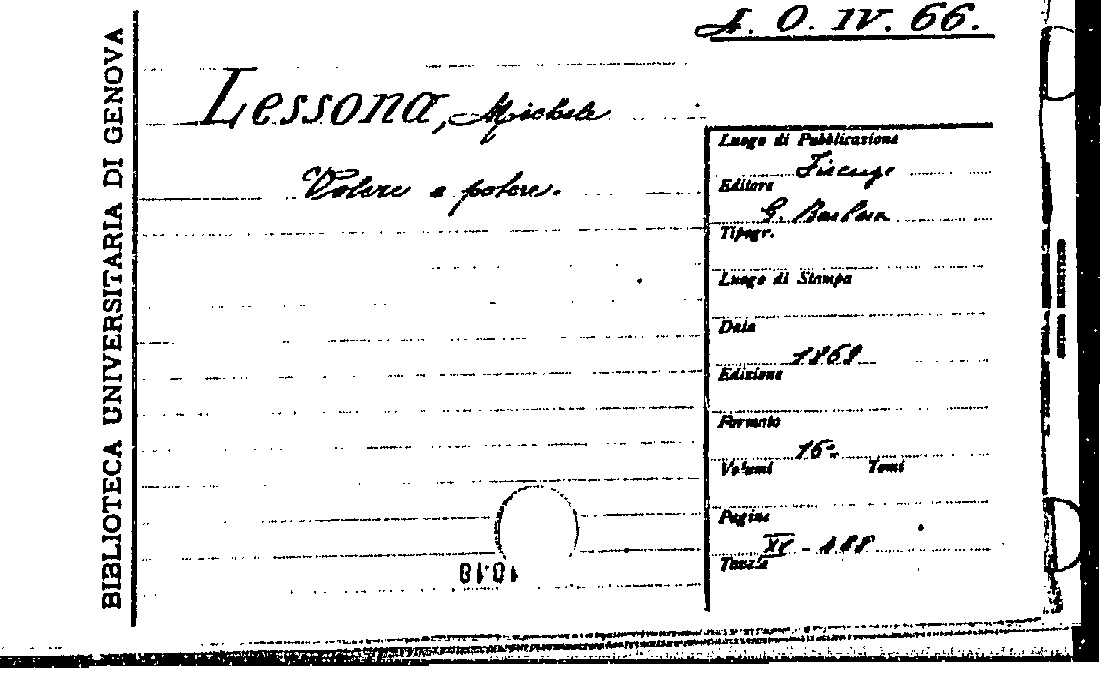 4. O. IV. 66.
BIBLIOTECA UNIVERSITARIA DI GENOVA
Lessona, Michele
Volere e potere.
Luogo di Pubblicazione
Firenze
Editore
G. Barbèra
Tipogr.
Luogo di Stampa
Data
1868
Edizione
Formato
16°
Volumi Tomi
Pagine
XI - 488
Tavole
10.18